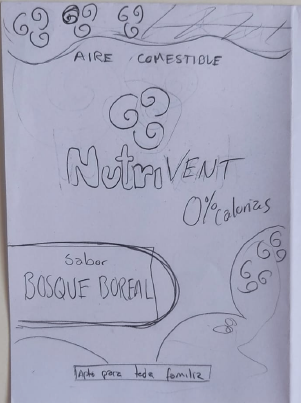 AIRE COMESTIBLE
NutriVENT
0% Calorias
Sabor
BOSQUE BOREAL
Apto para toda familia